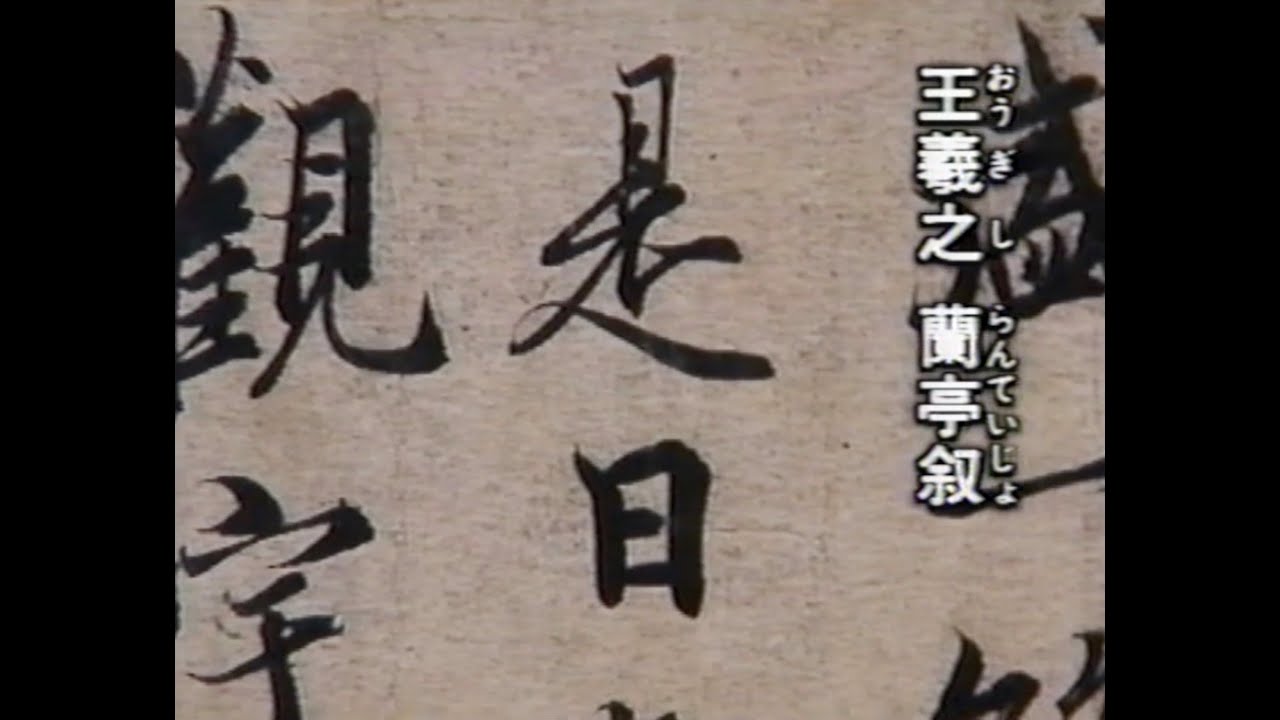 おうぎし らんていじょ
王羲之 蘭亭叙
盛一
是日
觀宇